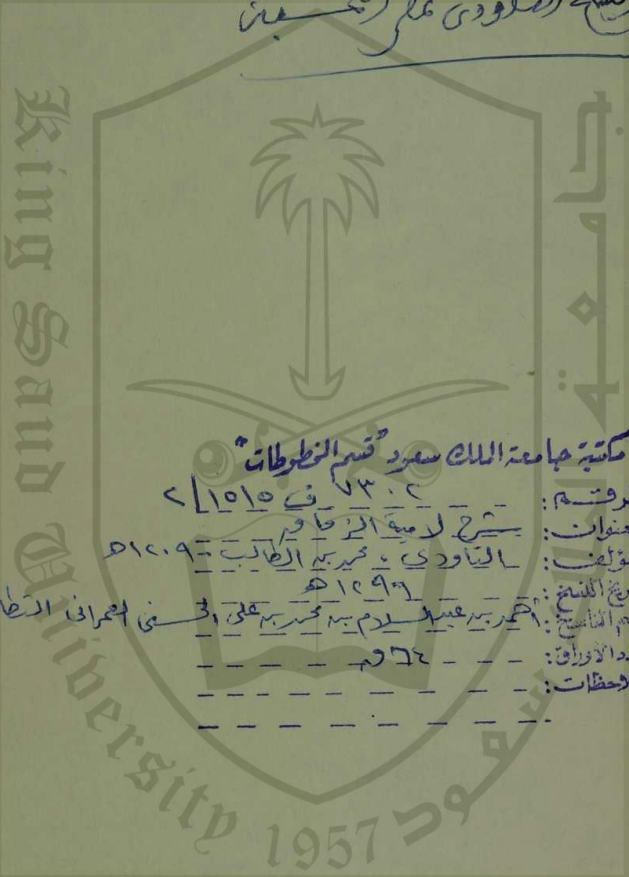 مكتبة جامعة الملك سعود "قسم المخطوطات"
الرقم: ٧٣٠٢ ف ١٥١٥/٢
العنوان: شرح لامية الزقاق
المؤلف: التاودي، محمد بن الطالب - ١٢٠٩هـ
تاريخ النسخ: ١٢٩٩هـ
اسم الناسخ: أحمد بن عبد السلام بن محمد بن علي الحسني العمراني
عدد الأوراق: ٦٤ ق
ملاحظات:
King Saud University 1957
جامعة الملك سعود